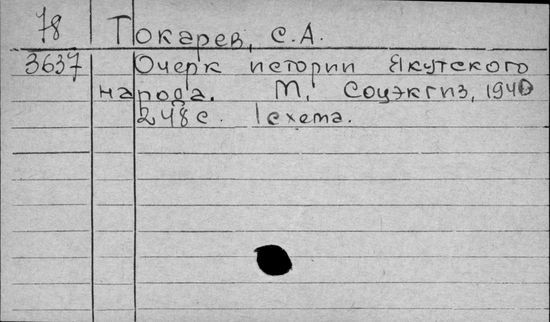 78 Токарев, С.А.
3637 Очерк истории Якутского
народа. М, Соцэкгиз, 1940
248с. 1схема.